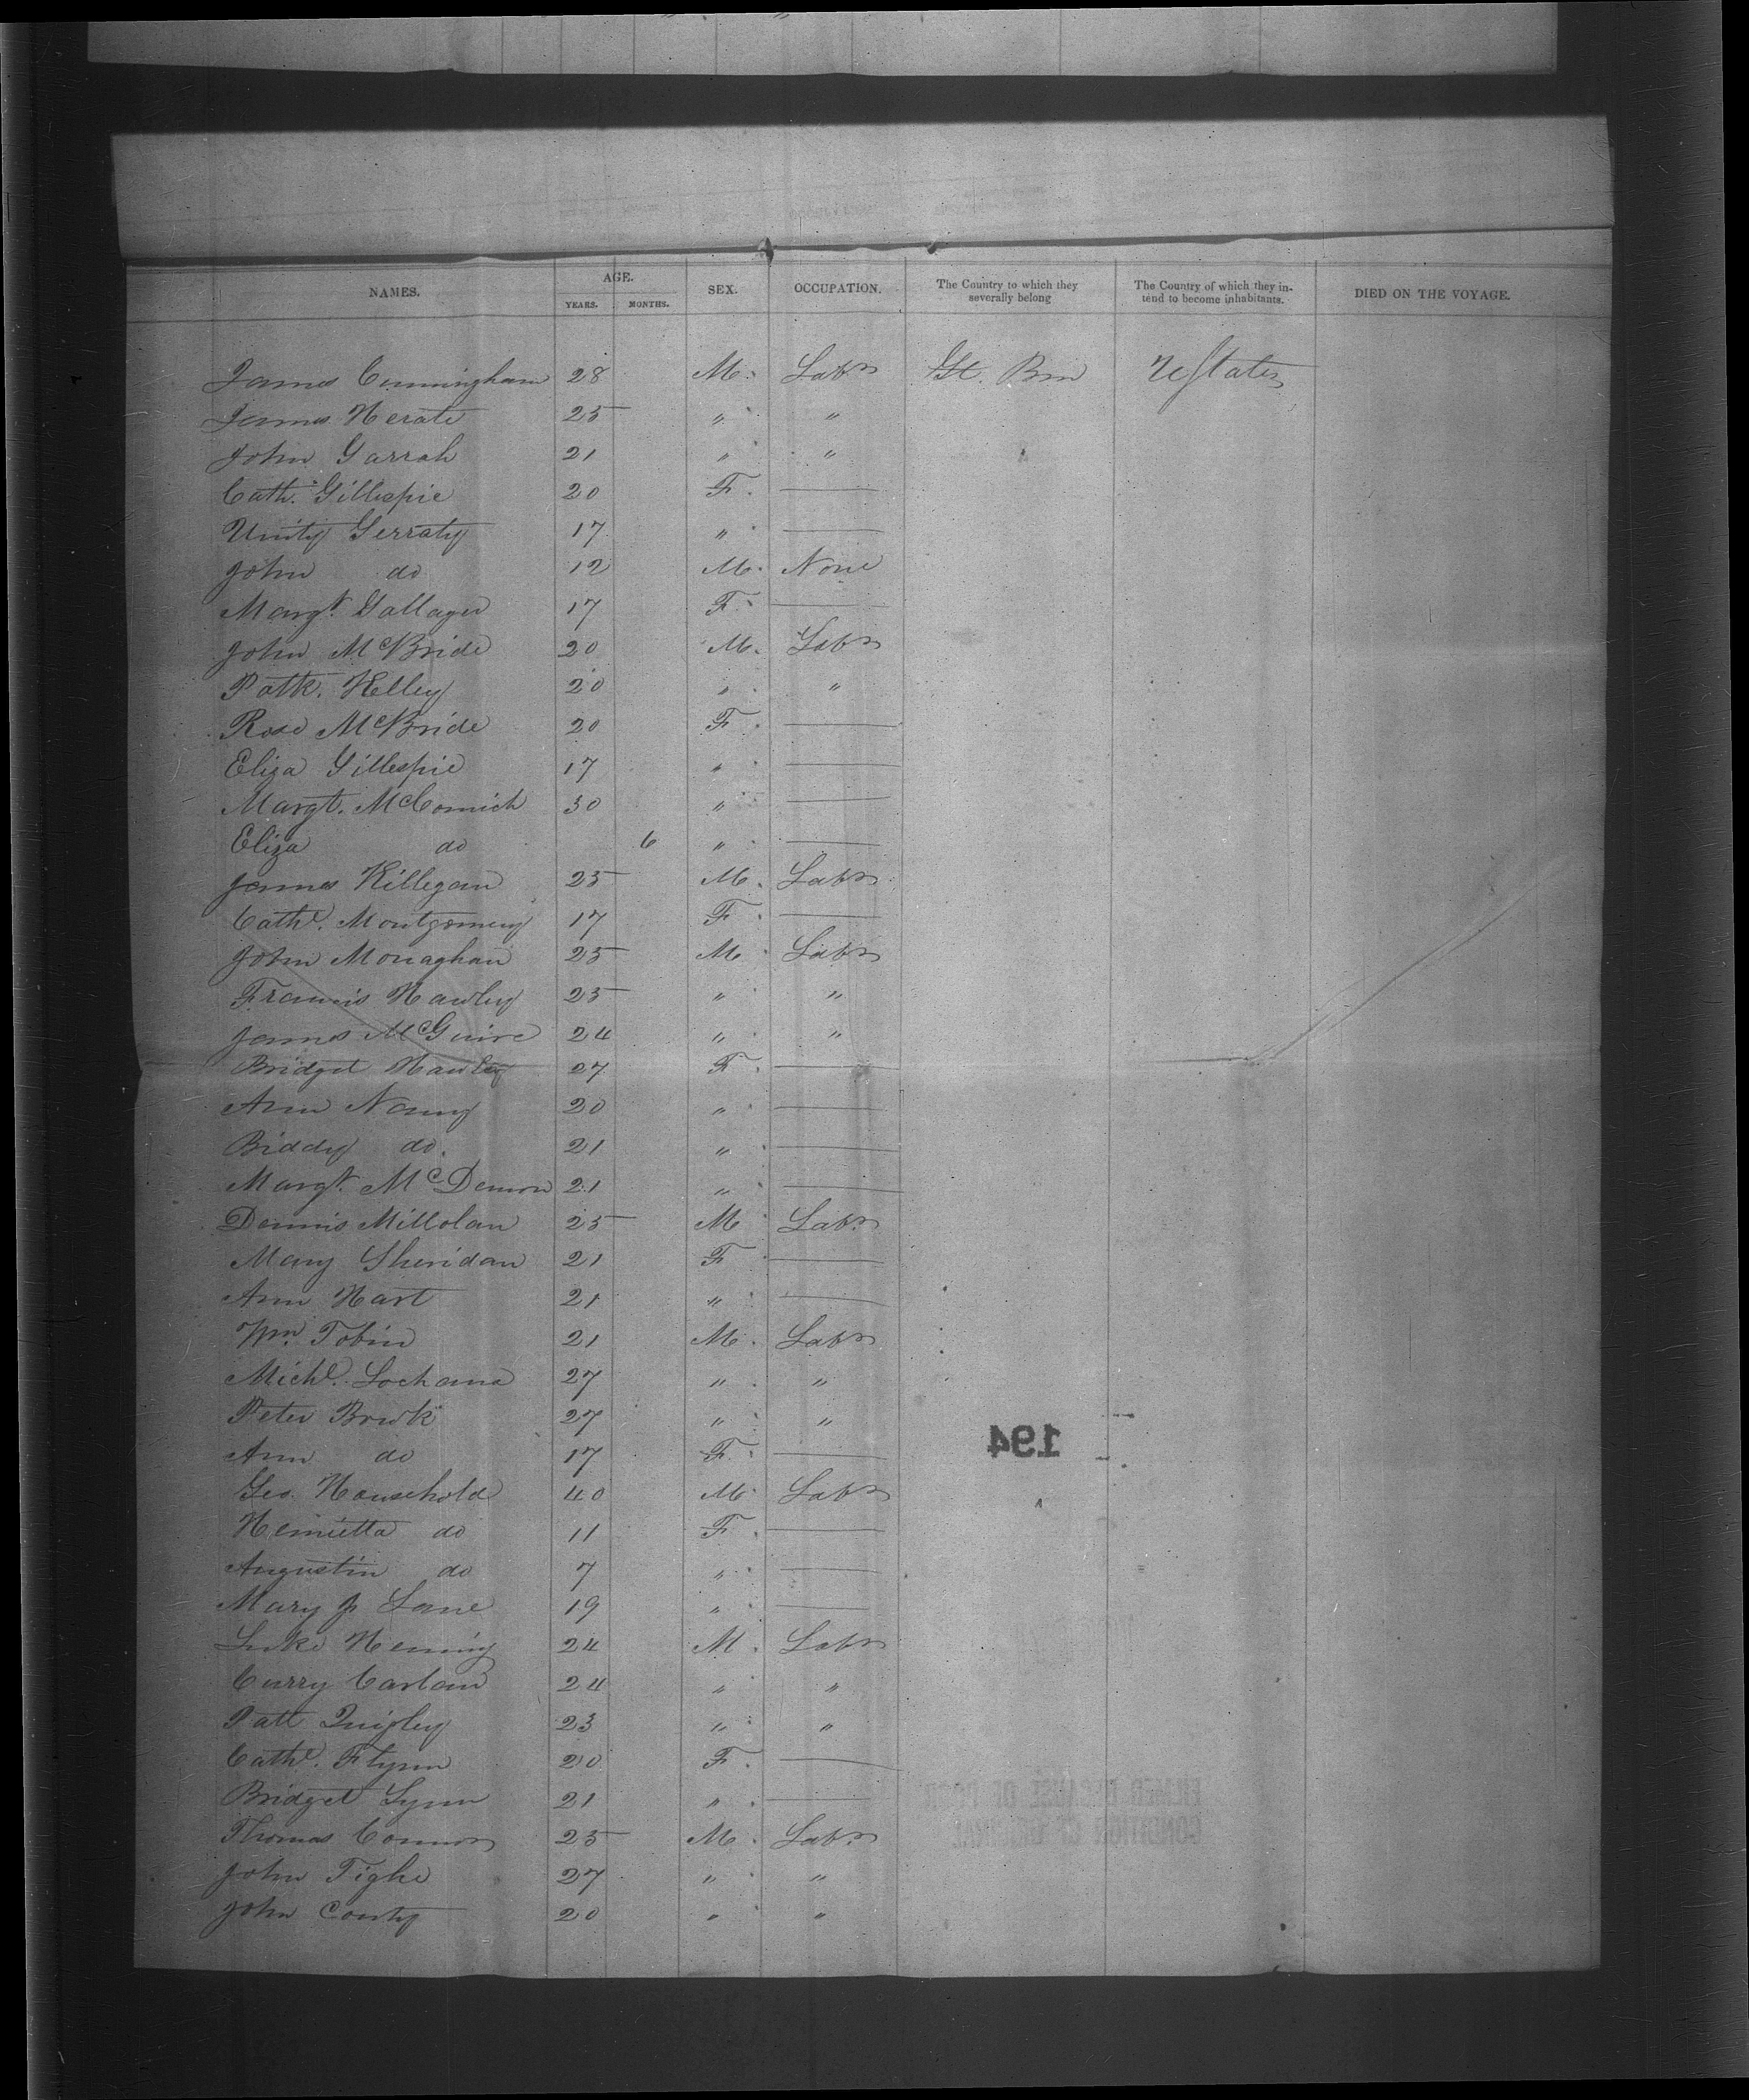 NAMES. AGE. SEX. OCCUPATION. The Country to which they severally belong The Country of which they intend to become inhabitants. DIED ON THE VOYAGE.
YEARS. MONTHS.
James Cunningham 28 M. Labr Gt. Brn UStates
James Herate 25 " "
John Garrah 21 " "
Cath. Gillespie 20 F. —
Unity Gerraty 17 " —
John do 12 M. None
Margt. Gallager 17 F. —
John McBride 20 M. Labr
Patk. Kelley 20 " "
Rose McBride 20 F. —
Eliza Gillespie 17 " —
Margt. McCormick 30 " —
Eliza do 6 " —
James Killegan 25 M. Labr
Cathe. Montgomery 17 F. —
John Monaghan 25 M Labr
Francis Hawley 25 " "
James McGuire 24 " "
Bridget Hawley 27 F. —
Ann Nanny 20 " —
Biddy do. 21 " —
Margt. McDemon 21 " —
Dennis Millolan 25 M Labr
Mary Sheridan 21 F —
Ann Hart 21 " —
Wm. Tobin 21 M. Labr
Michl. Lochana 27 " "
Peter Brok 27 " "
Ann do 17 F. —
194
Geo. Household 40 M. Labr
Henrietta do 11 F. —
Augustin do 7 " —
Mary J Lane 19 " —
Luke Henning 24 M. Labr
Curry Carlan 24 " "
Patt Quigley 23 " "
Cathe. Flynn 20 F. —
Bridget Lynn 21 " —
FILMED BECAUSE OF POOR
CONDITION OF ORIGINAL
Thomas Connor 25 M. Labr
John Tighe 27 " "
John Conty 20 " "